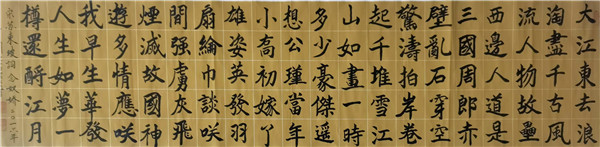 大江東去浪
淘盡千古風
流人物故壘
西邊人道是
三國周郎赤
壁亂石穿空
驚濤拍岸卷
起千堆雪江
山如畫一時
多少豪傑遥
想公瑾當年
小喬初嫁了
雄姿英發羽
扇綸巾談咲
間强虜灰飛
煙滅故國神
遊多情應咲
我早生華發
人生如夢一
樽還酹江月
東坡詞念奴嬌